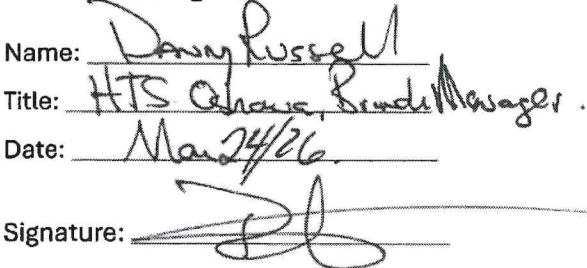 Name: Danny Russell
Title: HTS Oshawa, Branch Manager.
Date: Mar 24/26.
Signature: